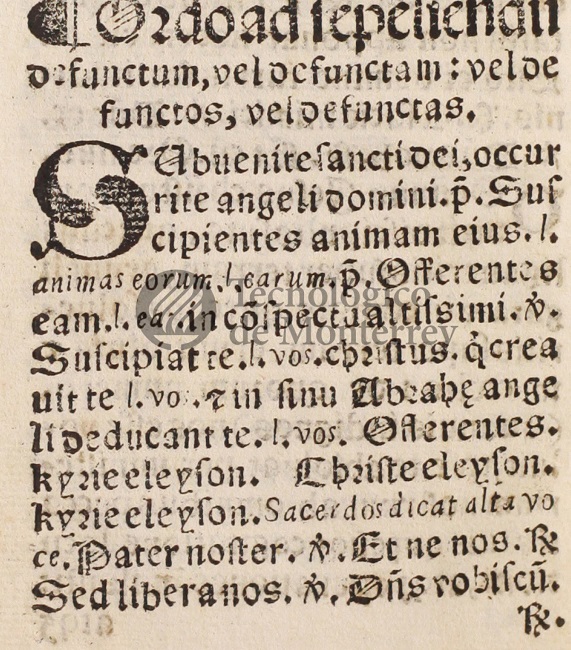 ¶Ordo ad sepeliendū
defunctum, vel defunctam: vel de
functos, vel defunctas.
SUbuenite sancti dei, occur
rite angeli domini. p̄. Sus
cipientes animam eius. l.
animas eorum. l. earum. p̄. Offerentes
eam. l. eas in cōspectu altissimi. ℣.
Suscipiat te. l. vos. christus. q̇ crea
uit te l. vos. ⁊ in sinu Abrahę ange
li deducant te. l. vos. Offerentes.
kyrie eleyson. Christe eleyson.
kyrie eleyson. Sacerdos dicat alta vo
ce. Pater noster. ℣. Et ne nos. ℟
Sed libera nos. ℣. Dñs vobiscū.
℟.
Tecnológico
de Monterrey